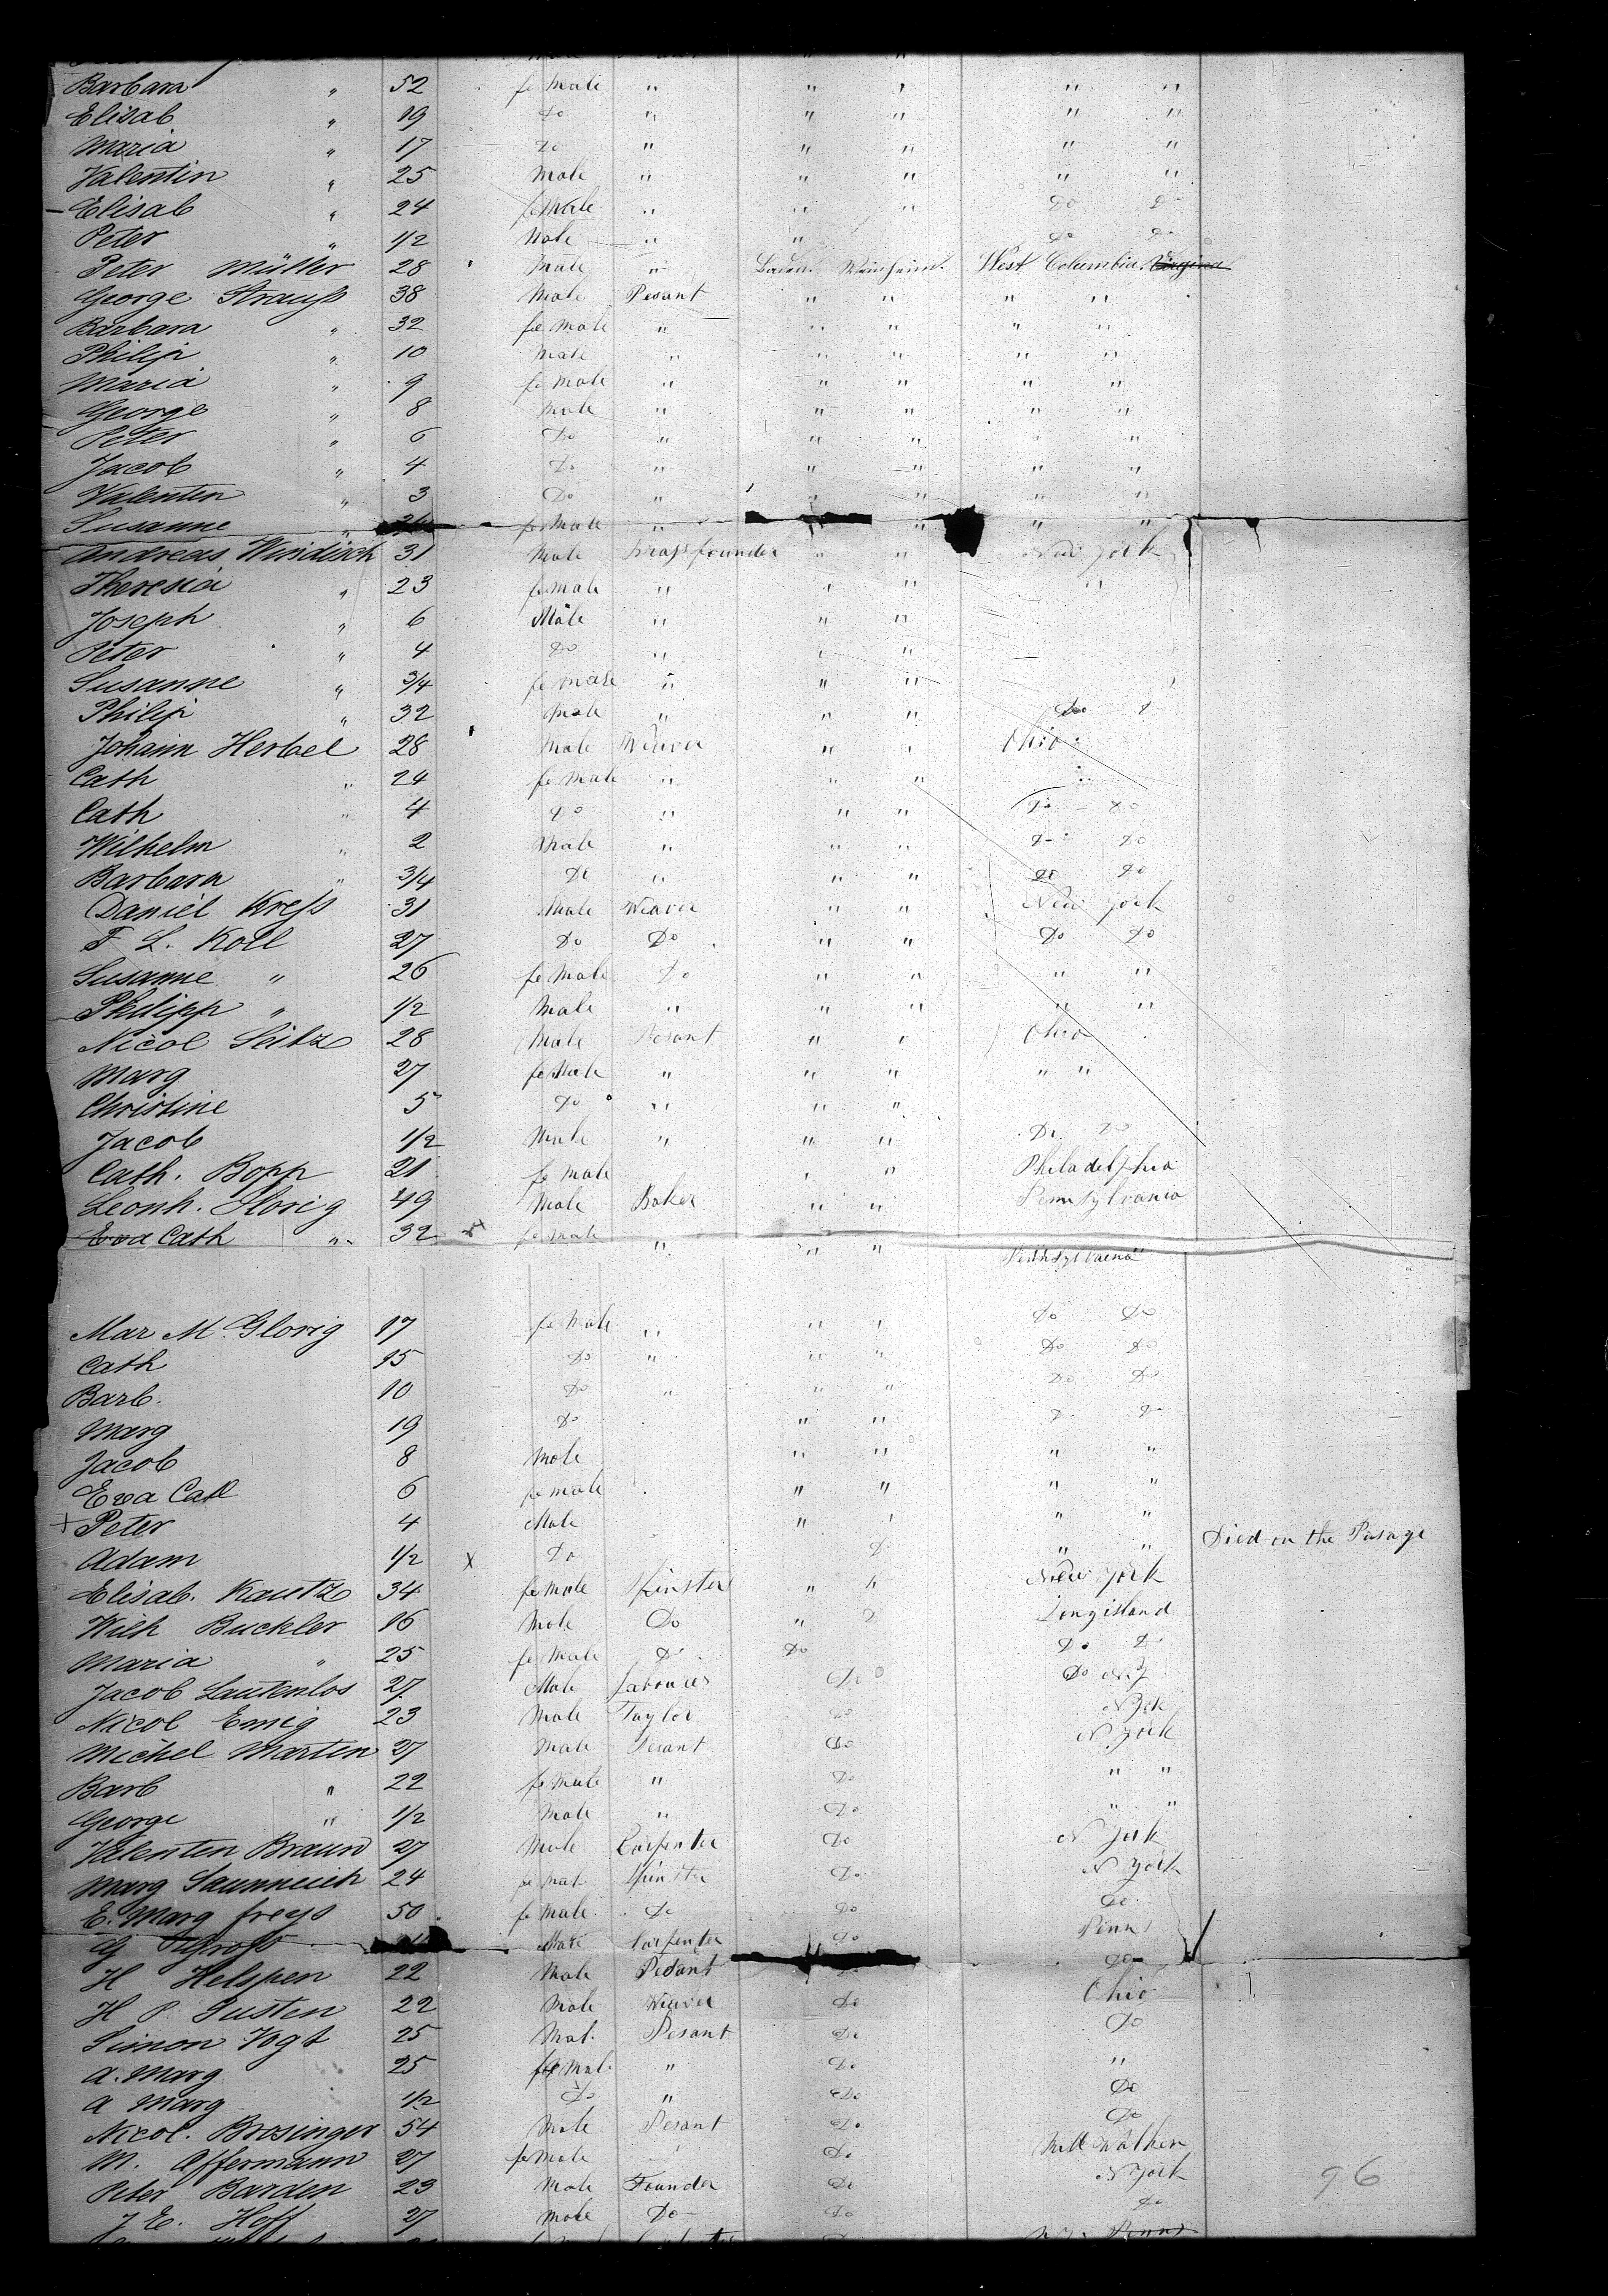 Barbara " 52 fe Male " " " " "
Elisab " 19 Do " " " " "
Maria " 17 Do " " " " "
Valentin " 25 Male " " " " "
Elisab " 24 fe Male " " " Do Do
Peter " 1/2 Male " " Do Do
Peter Müller 28 Male " Baden Weinheim. West Columbia Virginia
George Strauss 38 Male Pesant " " " "
Barbara " 32 fe Male " " " " "
Philip " 10 Male " " " " "
Maria " 9 fe Male " " " " "
George " 8 Male " " " " "
Peter " 6 Do " " " " "
Jacob " 4 Do " " " " "
Valenten " 3 Do " " " " "
Susanne " fe Male " " " "
Andreas Windisch 31 Male Brassfounder " " New York
Theresia " 23 fe Male " " " "
Joseph " 6 Male " " "
Peter " 4 Do " " "
Susanne " 3/4 fe male " " "
Philip " 32 Male " " " Do
Johann Herbel 28 Male Weaver " " Ohio
Cath " 24 fe Male " " " "
Cath " 4 Do " " " Do Do
Wilhelm " 2 Male " " " Do Do
Barbara " 3/4 Do " " " Do Do
Daniel Kress 31 Male Weaver " " New York
F L. Koll 27 Do Do " " Do Do
Susanne " 26 fe Male Do " " " "
Philipp " 1/2 Male " " " " "
Nicol Seitz 28 Male Pesant " " Ohio
Marg 27 fe Male " " " " "
Christine 5 Do " " "
Jacob 1/2 Male " " " Do Do
Cath. Bopp 21 fe male " " Philadelphia
Leonh. Glorig 49 Male Baker " " Pennsylvania
Eva Cath " 32 fe male " " " Pennsylvaena
Mar M. Glorig 17 fe Male " " " Do Do
Cath 15 Do " " " Do Do
Barb. 10 Do " " " Do Do
Marg 19 Do " " Do Do
Jacob 8 Male " " " "
Eva Cath 6 fe male " " " "
x Peter 4 Male " " " "
Adam 1/2 x Do Do " " Died on the Pasage
Elisab. Kautz 34 fe male Spinster " " New York
Wilh Buckler 16 Male Do " Longisland
Maria " 25 fe Male Do Do Do Do
Jacob Lautenlos 27 Male Labourer Do Do N.Y
Nicol Emig 23 Male Taylor Do N York
Michel Marten 27 Male Pesant Do N. York
Barb " 22 fe Male " Do " "
George " 1/2 Male " Do " "
Valenten Braun 27 Male Carpenter Do N York
Marg 24 fe Mal. Spinster Do N York
E. Marg freys 50 fe Male Do Do Do
G Gross Male Carpenter Do Penns
H Helspen 22 Male Pesant Do Do
H P. Justen 22 Male Weaver Do Ohio
Simon Vogt 25 Mal. Pesant Do Do
A. Marg 25 fe Mal. " Do "
A Marg 1/2 Do " Do Do
Nicol. Brosinger 54 Male Pesant Do Do
M. Offermann 27 fe Male Do
Peter Barden 23 Male Founder Do N York
J E. Hoff 27 Male Do Do Do
96